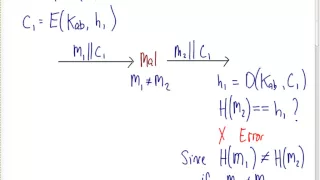 C₁ = E(K_ab, h₁)
m₁||C₁ Mal m₂||C₁
m₁≠m₂
h₁ = D(K_ab, C₁)
H(m₂) == h₁ ?
X Error
Since H(m₁) ≠ H(m₂)
if